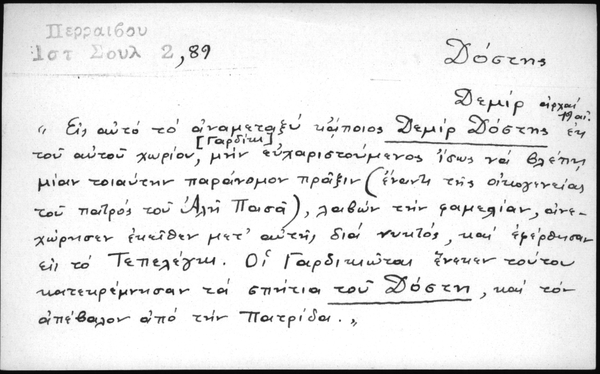 Περραιβου
Ιστ Σουλ 2, 89
Δόστης
Δεμίρ ἀρχαί
19 αἰ.
" Εἰς αὐτό τό ἀναμεταξύ κἄποιος Δεμίρ Δόστης ἐκ
[Γαρδίκι]
τοῦ αὐτοῦ χωρίου, μήν εὐχαριστούμενος ἴσως νά βλέπῃ
μίαν τοιαύτην παράνομον πρᾶξιν (ἔναντι τῆς οἰκογενείας
τοῦ πατρός τοῦ Ἀλῆ Πασᾶ), λαβών τήν φαμελίαν, ἀνε-
χώρησεν ἐκεῖθεν μετ' αὐτῆς διά νυκτός, καί ἐφέρθησαν
εἰς τό Τεπελένι. Οἱ Γαρδικιῶται ἕνεκεν τούτου
κατεκρέμνησαν τά σπήτια τοῦ Δόστη, καί τόν
ἀπέβαλον ἀπό τήν Πατρίδα. "